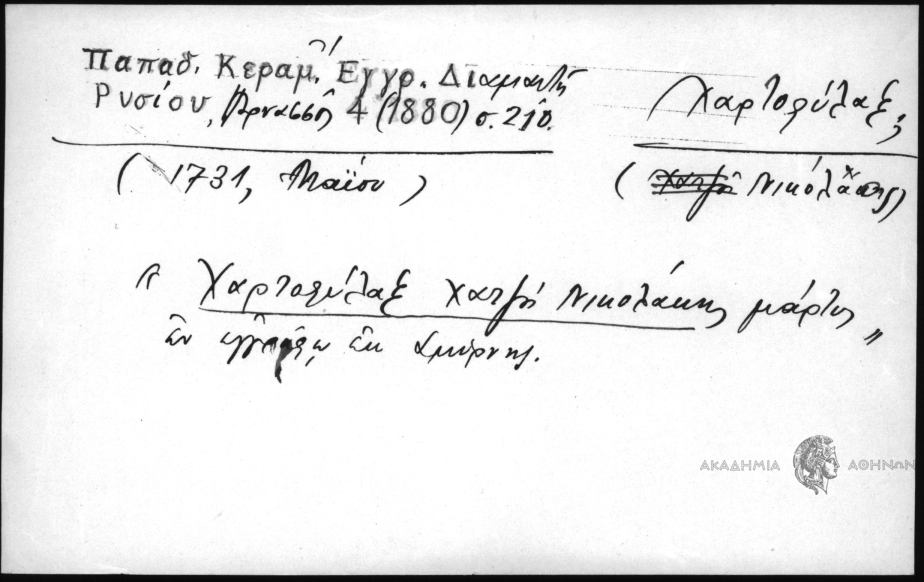 Παπαδ. Κεραμ. Ἔγγρ. Διαμαντῆ
Ρυσίου, Παρνασσὸς 4 (1880) σ. 210.
Χαρτοφύλαξ,
(1731, Μαΐου)
(Χατζῆ Νικολάκης)
" Χαρτοφύλαξ Χατζῆ Νικολάκης μάρτυς "
ἐν ἐγγράφῳ ἐκ Σμύρνης.
ΑΚΑΔΗΜΙΑ ΑΘΗΝΩΝ